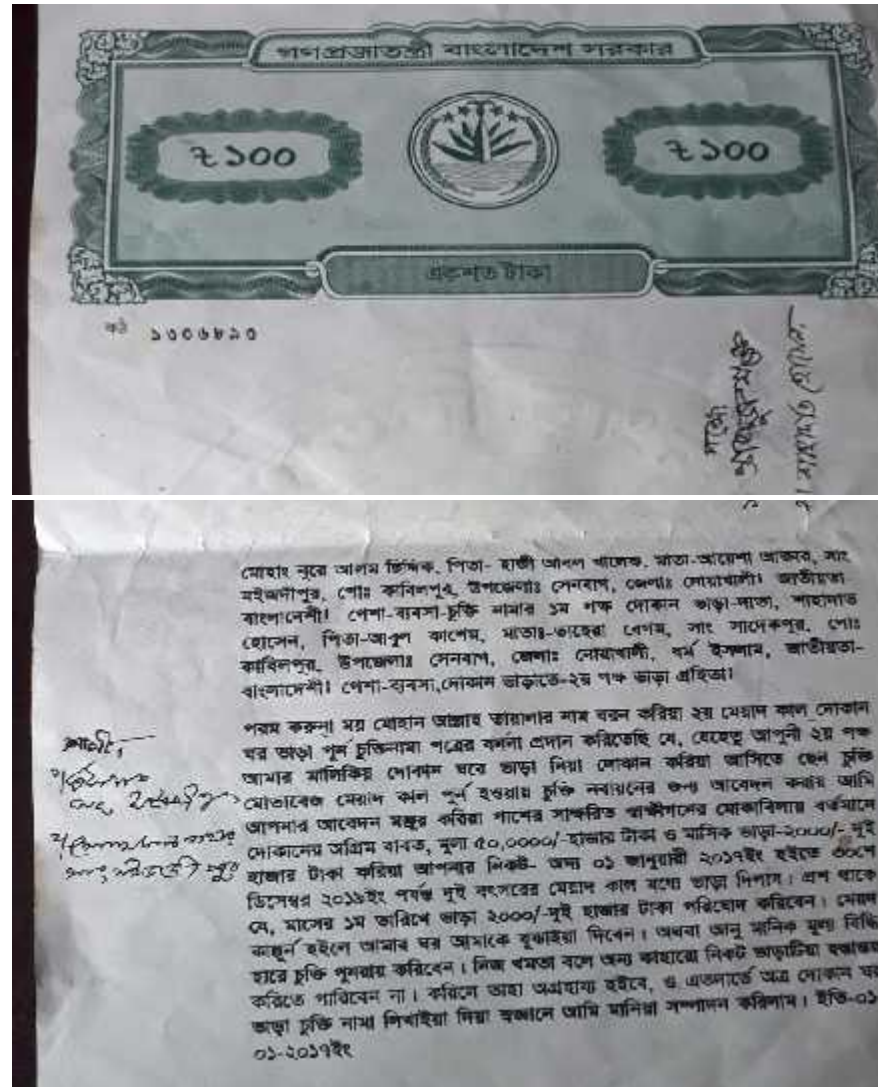 গণপ্রজাতন্ত্রী বাংলাদেশ সরকার
৳১০০ ৳১০০
একশত টাকা
কঠ ১৩০৬৮৯৩
মোহাং নুরে আলম ছিদ্দিক, পিতা- হাজী আবদুল খালেক, মাতা-আয়েশা আক্তার, সাং
মইজদীপুর, পোঃ কাবিলপুর, উপজেলাঃ সেনবাগ, জেলাঃ নোয়াখালী। জাতীয়তা-
বাংলাদেশী। পেশা-ব্যবসা-চুক্তি নামার ১ম পক্ষ দোকান ভাড়া-দাতা, শাহাদাত
হোসেন, পিতা-আবুল কাশেম, মাতাঃ-তাহেরা বেগম, সাং সাদেকপুর, পোঃ
কাবিলপুর, উপজেলাঃ সেনবাগ, জেলাঃ নোয়াখালী, ধর্ম ইসলাম, জাতীয়তা-
বাংলাদেশী। পেশা-ব্যবসা,দোকান ভাড়াতে-২য় পক্ষ ভাড়া গ্রহিতা।
পরম করুনা ময় মোহান আল্লাহ তায়ালার নাম স্বরন করিয়া ২য় মেয়াদ কাল দোকান
ঘর ভাড়া পুন চুক্তিনামা পত্রের বর্ননা প্রদান করিতেছি যে, যেহেতু আপুনী ২য় পক্ষ
আমার মালিকিয় দোকান ঘরে ভাড়া নিয়া দোকান করিয়া আসিতে ছেন চুক্তি
মোতাবেক মেয়াদ কাল পূর্ন হওয়ায় চুক্তি নবায়নের জন্য আবেদন করায় আমি
আপনার আবেদন মঞ্জুর করিয়া পাশের সাক্ষরিত স্বাক্ষীগনের মোকাবিলায় বর্তমানে
দোকানের অগ্রিম বাবত, মূল্য ৫০,০০০০/-হাজার টাকা ও মাসিক ভাড়া-২০০০/- দুই
হাজার টাকা করিয়া আপনার নিকট- অদ্য ০১ জানুয়ারী ২০১৭ইং হইতে ৩০শে
ডিসেম্বর ২০১৮ইং পর্যন্ত দুই বৎসরের মেয়াদ কাল মধ্যে ভাড়া দিলাম।
যে, মাসের ১ম তারিখে ভাড়া ২০০০/-দুই হাজার টাকা পরিষোধ করিবেন। মেয়াদ
হইলে আমার ঘর আমাকে বুঝাইয়া দিবেন। অথবা আনু মানিক মূল্য বিদ্ধি
হারে চুক্তি পুনরায় করিবেন। নিজ খমতা বলে অন্য কাহারো নিকট ভাড়াটিয়া হস্তান্তর
করিতে পারিবেন না। করিলে তাহা অগ্রহায্য হইবে, ও এতদার্তে অত্র দোকান ঘর
ভাড়া চুক্তি নামা লিখাইয়া দিয়া স্বজ্ঞানে আমি মানিয়া সম্পাদন করিলাম। ইতি-০১-
০১-২০১৭ইং